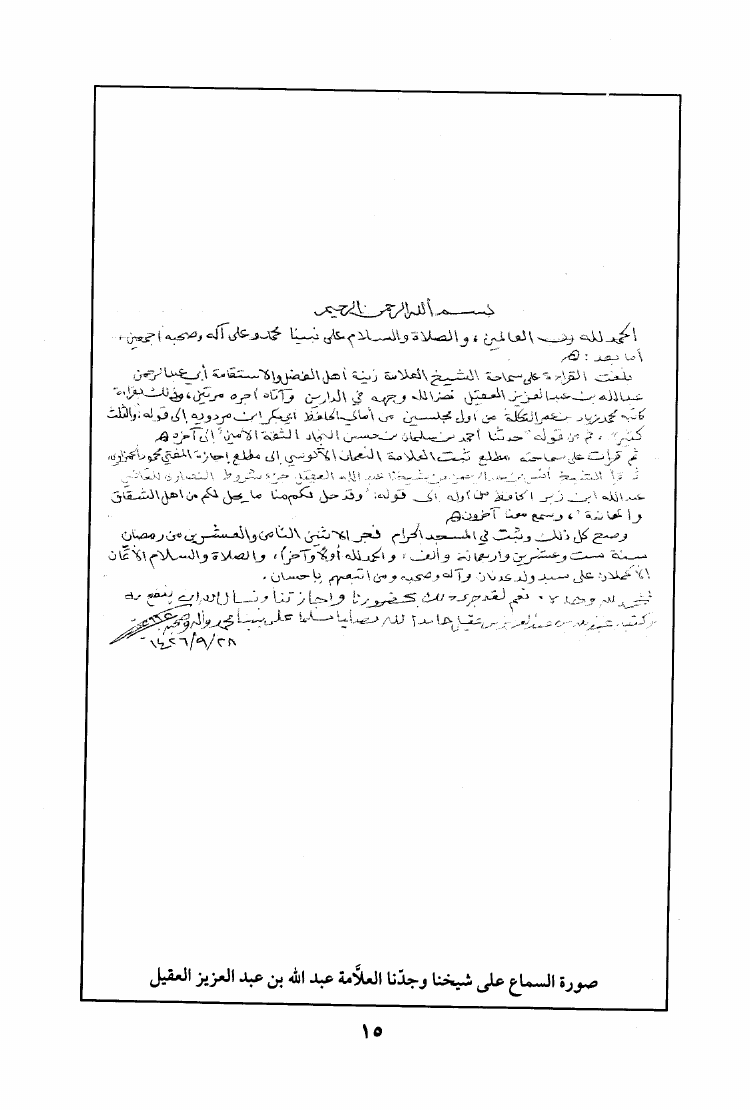 بسم الله الرحمن الرحيم
الحمد لله رب العالمين، والصلاة والسلام على نبينا محمد وعلى آله وصحبه أجمعين.
أما بعد:
بلغت القراءة على سماحة الشيخ العلامة زينة أهل الفضل والاستقامة أبي عبد الرحمن
عبد الله بن عبد العزيز العقيل نضر الله وجهه في الدارين وآتاه أجره مرتين، وذلك بقراءة
كاتبه محمد زياد بن عمر التكلة من أول مجلسين من أمالي الحافظ أبي بكر ابن مردويه إلى قوله: والثلث
كثير، ثم من قوله: حدثنا أحمد بن سلمان بن حسن النجاد الثقة الأمين إلى آخره
ثم قرأت على سماحته مطلع ثبت العلامة النعمان الآلوسي إلى مطلع إجازة المفتي محمود
الشيخ أنس بن عبد الرحمن بن شيخنا عبد الله العقيل جزء شروط النصارى للقاضي
عبد الله ابن زبر الحافظ من أوله إلى قوله: وقد حل لكم منا ما يحل لكم من أهل الشقاق
والمعاندة، وسمع معنا آخرون
وصح كل ذلك وثبت في المسجد الحرام فجر الاثنين الثامن والعشرين من رمضان
سنة ست وعشرين وأربعمائة وألف، والحمد لله أولا وآخرا، والصلاة والسلام الأتمان
الأكملان على سيد ولد عدنان وآله وصحبه ومن اتبعهم بإحسان.
الحمد لله وحده، نعم لقد جرى ذلك بحضورنا وإجازتنا ونسأل الله أن ينفع به
وكتبه عبد الله بن عبد العزيز بن عقيل حامدا لله مصليا مسلما على نبينا محمد وآله وصحبه
١٤٢٦/٩/٢٨
صورة السماع على شيخنا وجدّنا العلاَّمة عبد الله بن عبد العزيز العقيل
١٥